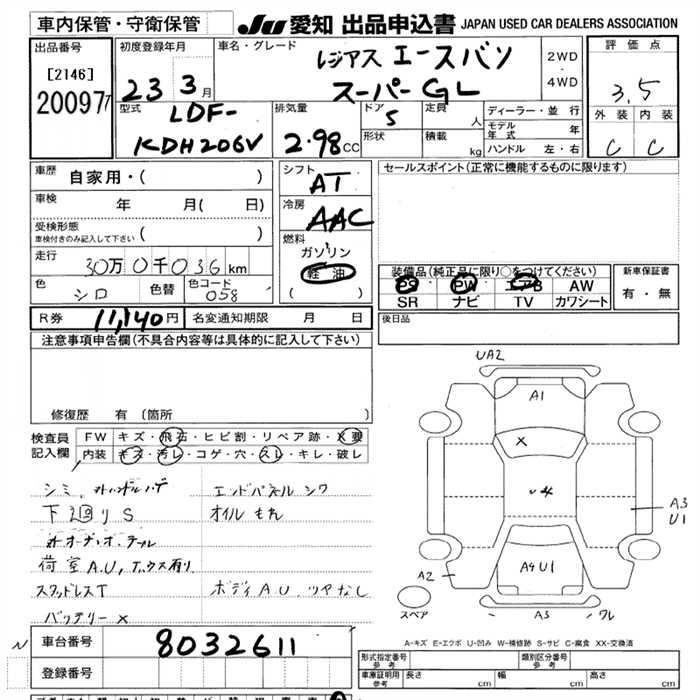 車内保管・守衛保管
JU 愛知 出品申込書 JAPAN USED CAR DEALERS ASSOCIATION
出品番号
[2146]
200977
初度登録年月
23 3月
車名・グレード
レジアス エースバン
スーパーGL
2WD
・
4WD
評価点
3.5
外装 内装
C C
型式
LDF-
KDH206V
排気量
2.98 CC
ドア
5
形状
定員
人
積載
kg
ディーラー・並行
モデル年式 年
ハンドル 左・右
車歴
自家用・( )
車検
年 月( 日)
受検形態
車検付きのみ記入して下さい ( )
走行
30万0千036km
色
シロ
色替
色コード
058
シフト
AT
冷房
AAC
燃料
ガソリン
軽油
( )
セールスポイント(正常に機能するものに限ります)
装備品(純正品に限り○をつけてください)
PS PW エアB AW
SR ナビ TV カワシート
新車保証書
有・無
R券 11,140円 名変通知期限 月 日
後日品
注意事項申告欄(不具合内容等は具体的に記入して下さい)
修復歴 有 〔箇所 〕
検査員
記入欄
FW キズ・飛石・ヒビ割・リペア跡・X要
内装 キズ・汚レ・コゲ・穴・スレ・キレ・破レ
シミ
エンドパネル シワ
下廻りS
オイルもれ
荷室A.U,
スタッドレスT
ボディA.U ツヤなし
バッテリーX
UA2
A1
X
U4
A3
U1
A4U1
A2
A3
ワレ
スペア
A-キズ E-エクボ U-凹み W-補修跡 S-サビ C-腐食 XX-交換済
N
車台番号 8032611
登録番号
形式指定番号
参考
類別区分番号
参考
車庫証明用
参考
長さ cm
幅 cm
高さ cm